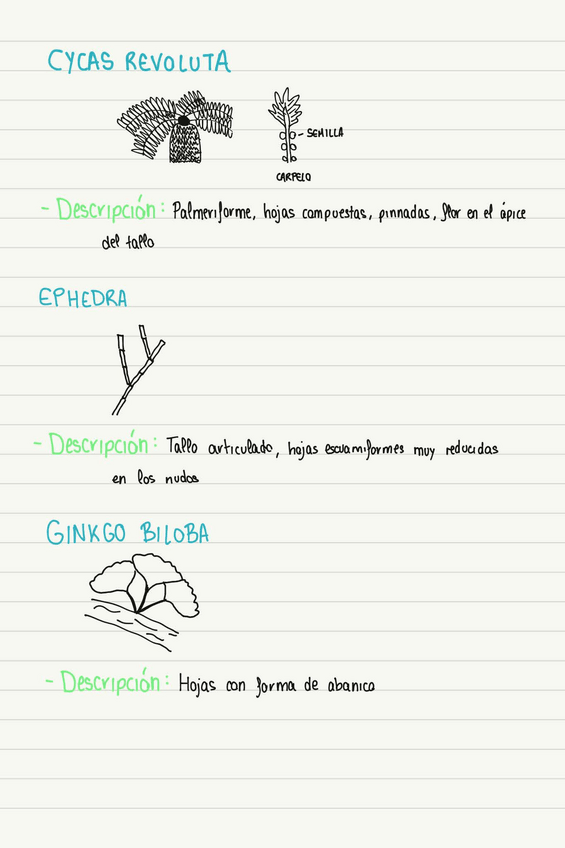 CYCAS REVOLUTA
- SEMILLA
CARPELO
- Descripción: Palmeriforme, hojas compuestas, pinnadas, flor en el ápice
del tallo
EPHEDRA
- Descripción: Tallo articulado, hojas escuamiformes muy reducidas
en los nudos
GINKGO BILOBA
- Descripción: Hojas con forma de abanico